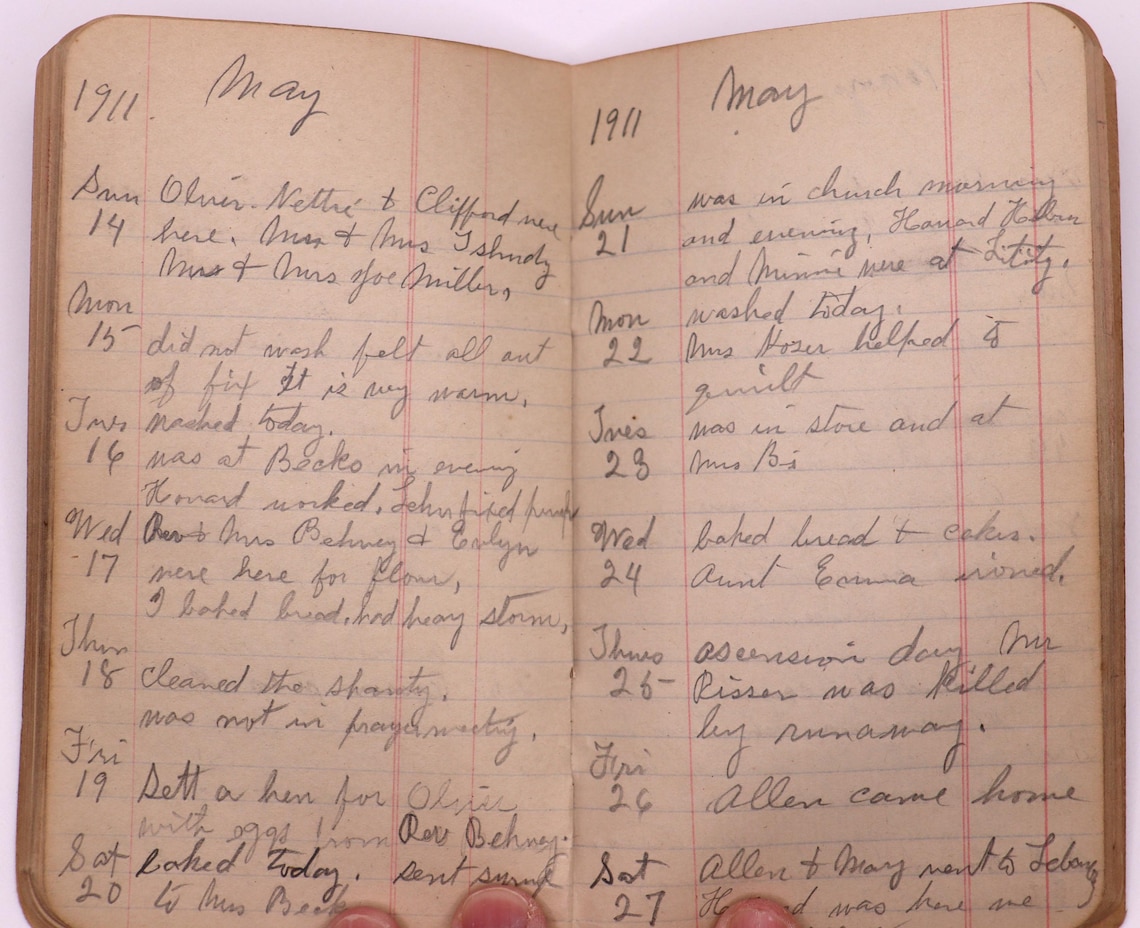 1911 May
Sun Oliver. Nettie & Clifford were
14 here. Mr & Mrs Tshudy
Mr & Mrs Joe Miller,
Mon
15 did not wash felt all out
of fix It is very warm.
Tues washed today.
16 was at Becks in evening
Howard worked. Lehn fixed pump
Wed Rev & Mrs Behney & Evelyn
17 were here for flour,
I baked bread, had heavy storm,
Thur
18 cleaned the shanty.
was not in prayermeeting.
Fri
19 Sett a hen for Oliver
with eggs from Rev Behney.
Sat baked today. sent some
20 to Mrs Beck
1911 May
Sun was in church morning
21 and evening, Howard
and Minnie were at Lititz.
Mon washed today.
22 Mrs Hozer helped to
quilt
Tues was in store and at
23 Mrs Bs
Wed baked bread & cakes.
24 Aunt Emma ironed.
Thurs ascension day Mr
25 Risser was killed
by runaway.
Fri
26 Allen came home
Sat Allen & May went to
27 was here we